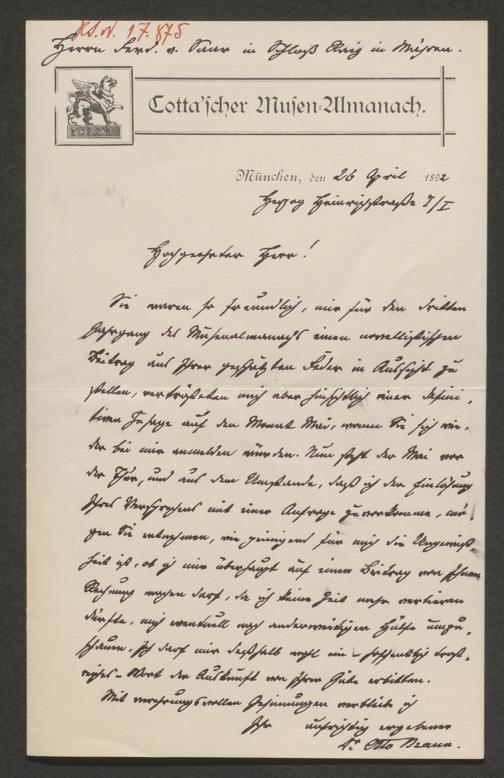 H.I.N. 17.875
Herrn Ferd. v. Saar in Schloß Raitz in Mähren.
Cotta'scher Musen-Almanach.
München, den 26 April 1892
Herzog Heinrichstraße 7/I
Hochgeehrter Herr!
Sie waren so freundlich, mir für den dritten
Jahrgang des Musenalmanachs einen novellistischen
Beitrag aus Ihrer geschätzten Feder in Aussicht zu
stellen, vertrösteten mich aber hinsichtlich einer defini-
tiven Zusage auf den Monat Mai, wann Sie sich wie-
der bei mir anmelden würden. Nun steht der Mai vor
der Thür, und aus dem Umstande, daß ich der Einlösung
Ihres Versprechens mit einer Anfrage zuvorkomme, mö-
gen Sie entnehmen, wie peinigend für mich die Ungewiß-
heit ist, ob ich mir überhaupt auf einen Beitrag von Ihnen
Rechnung machen darf, da ich keine Zeit mehr verlieren
dürfte, mich eventuell nach anderweitiger Hülfe umzu-
schauen. Ich darf mir deßhalb wohl ein – hoffentlich trost-
reiches – Wort der Auskunft von Ihrer Güte erbitten.
Mit verehrungsvollen Gesinnungen verbleibe ich
Ihr aufrichtig ergebener
Dr Otto Braun.